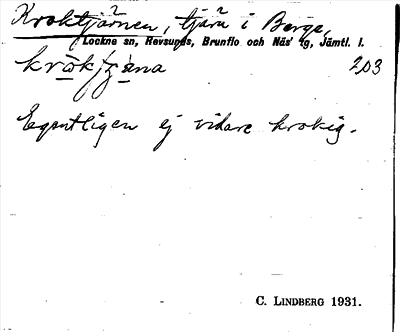 Kroktjärnen, tjärn i Berge,
Lockne sn, Revsunds, Brunflo och Näs' tg, Jämtl. l.
203
Egentligen ej vidare krokig.
C. LINDBERG 1931.